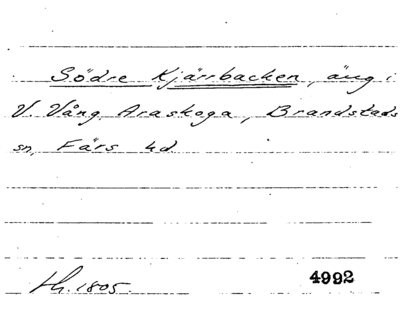 Södre Kjärrbacken, äng i
V. Vång, Araskoga, Brandstads
sn, Färs hd
Lh. 1805.
4992